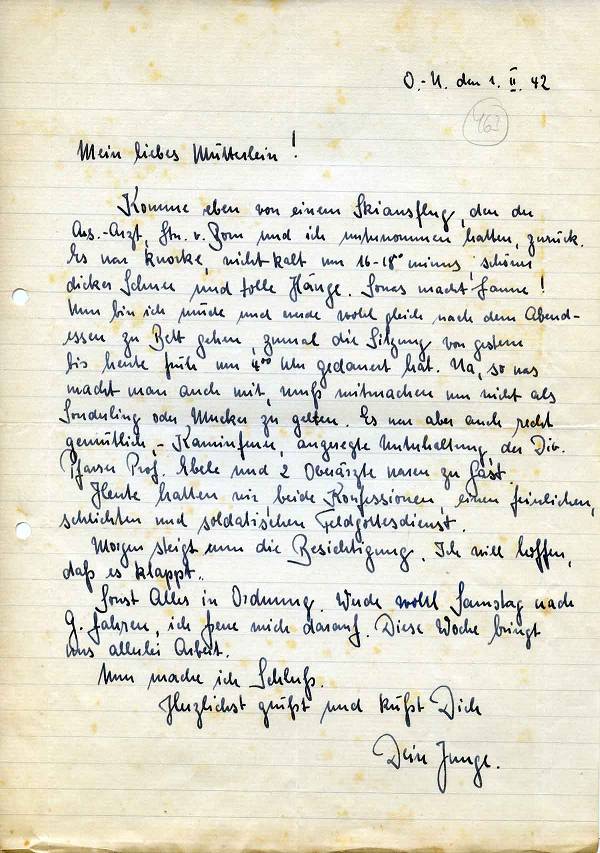 O.-U. den 1. II. 42
463
Mein liebes Mütterlein!
Komme eben von einem Skiausflug, den der
Ass.-Arzt, Stn. v. Born und ich unternommen hatten, zurück.
Es war knocke, nicht kalt um 16-18° minus, schöner
dicker Schnee und tolle Hänge. Sowas macht Laune!
Nun bin ich müde und werde wohl gleich nach dem Abend-
essen zu Bett gehen, zumal die Sitzung von gestern
bis heute früh um 4°° Uhr gedauert hat. Na, so was
macht man auch mit, muß mitmachen um nicht als
Sonderling oder Mucker zu gelten. Es war aber auch recht
gemütlich, - Kaminfeuer, angeregte Unterhaltung, der Div.
Pfarrer Prof. Ebele und 2 Oberärzte waren zu Gast.
Heute hatten wir, beide Konfessionen, einen feierlichen,
schlichten und soldatischen Feldgottesdienst.
Morgen steigt nun die Besichtigung. Ich will hoffen,
daß es klappt.
Sonst Alles in Ordnung. Werde wohl Samstag nach
G. fahren, ich freue mich darauf. Diese Woche bringt
uns allerlei Arbeit.
Nun mache ich Schluß.
Herzlichst grüßt und küßt Dich
Dein Junge.